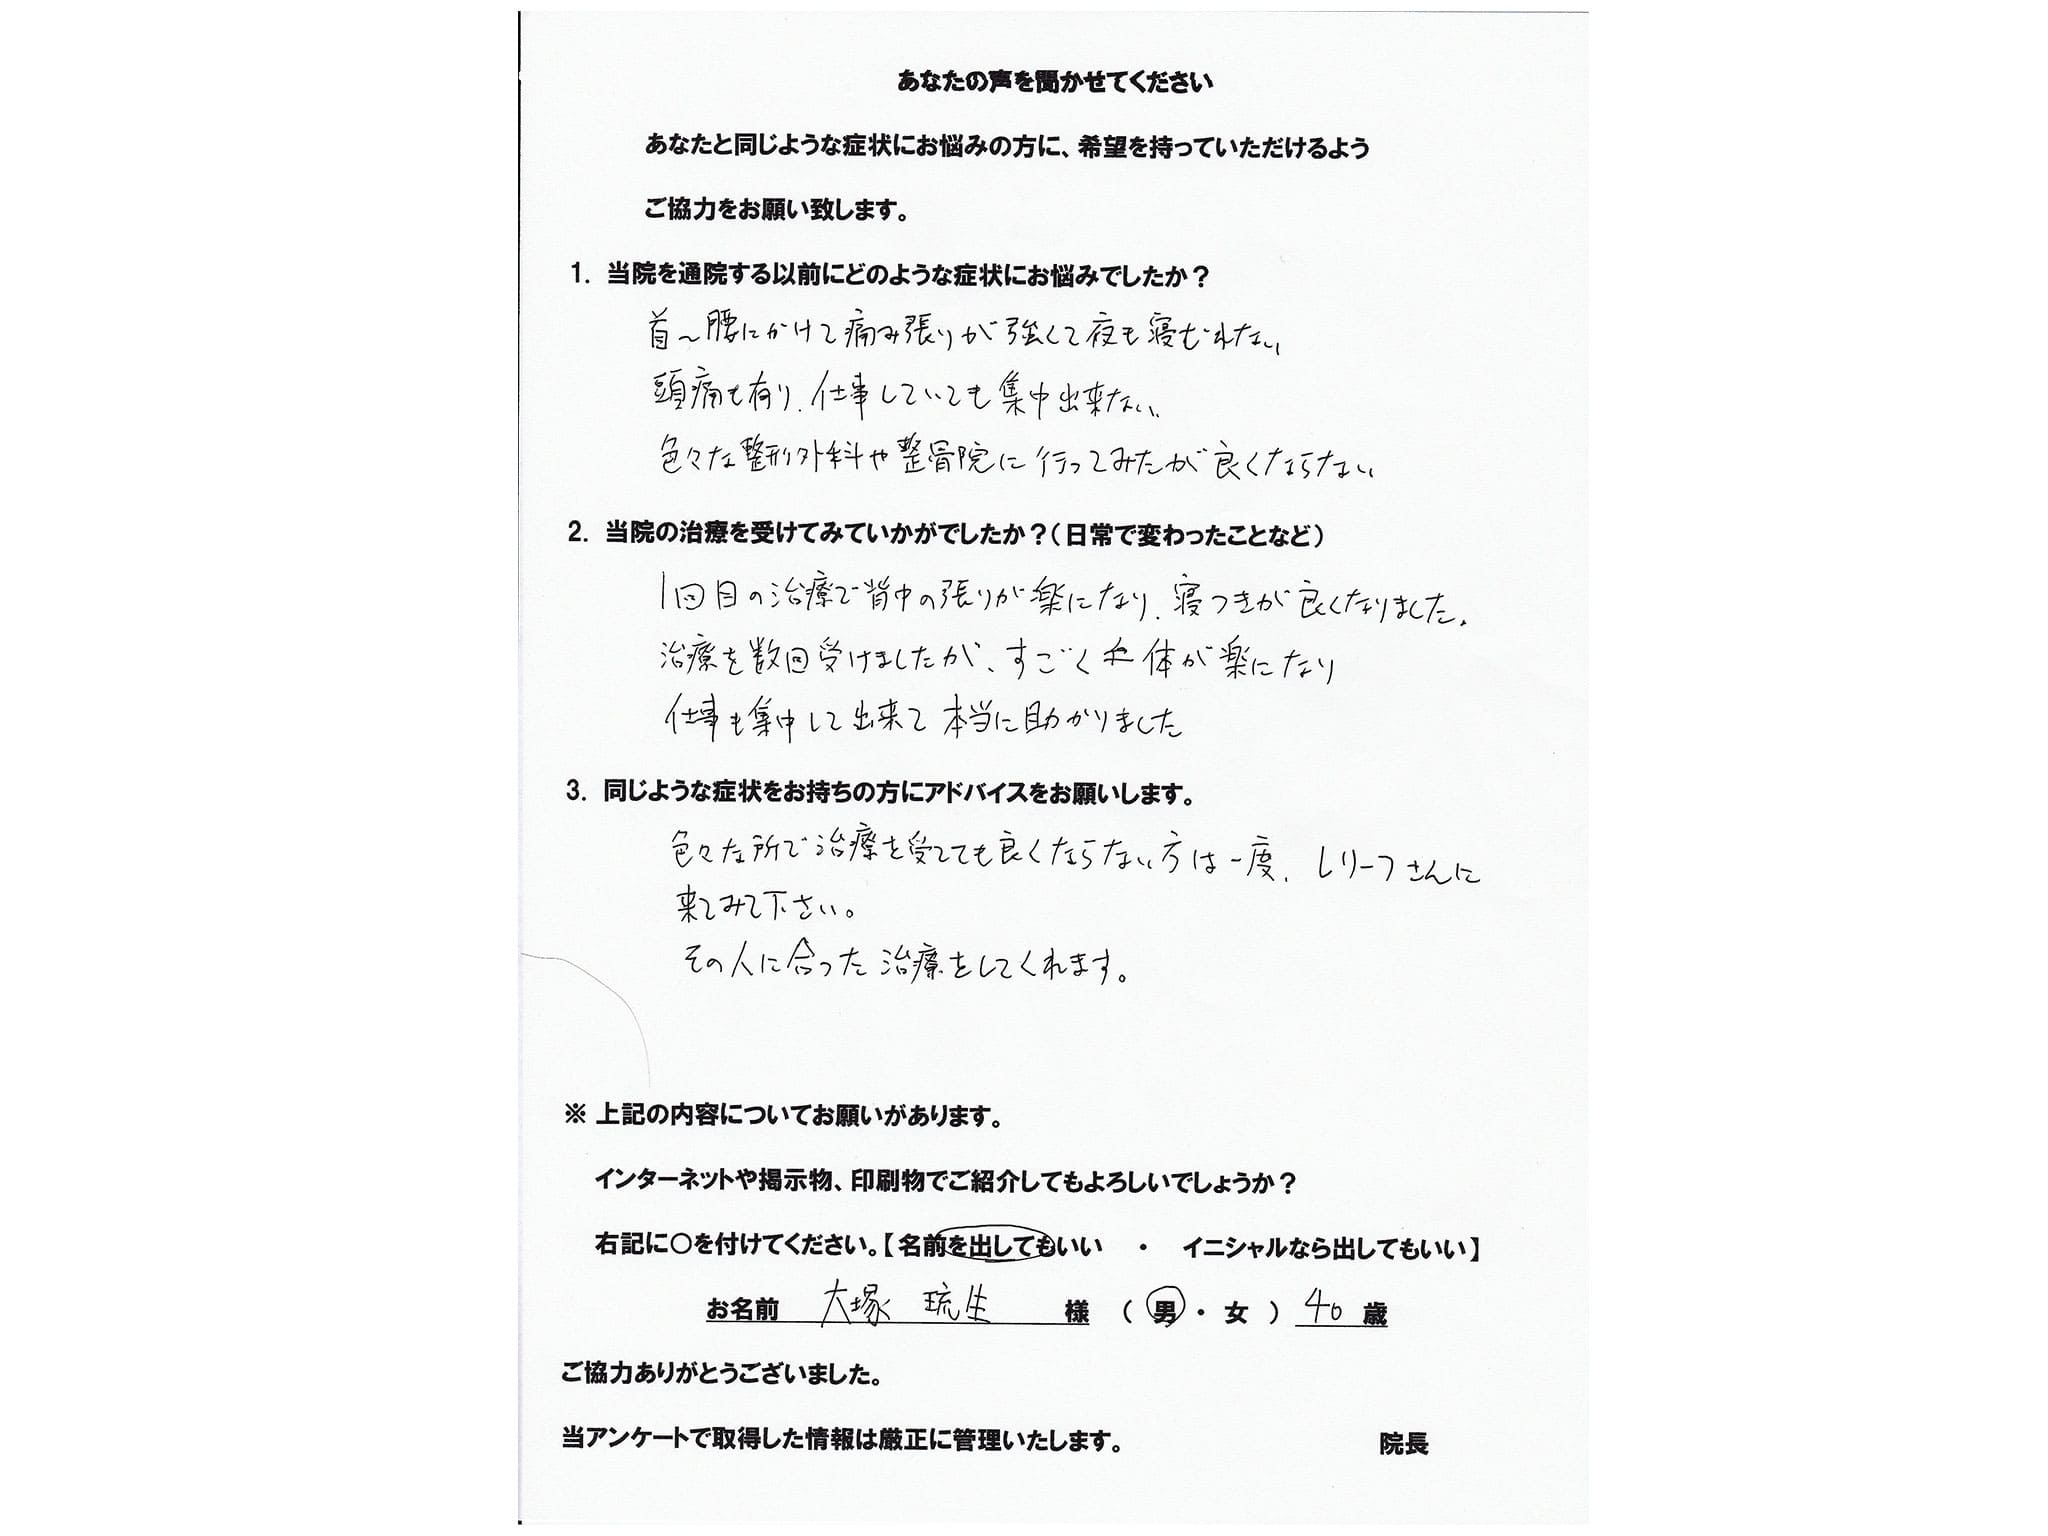 あなたの声を聞かせてください
あなたと同じような症状にお悩みの方に、希望を持っていただけるよう
ご協力をお願い致します。
1. 当院を通院する以前にどのような症状にお悩みでしたか？
首～腰にかけて痛み張りが強くて夜も寝むれない
頭痛も有り、仕事していても集中出来ない、
色々な整形外科や整骨院に行ってみたが良くならない
2. 当院の治療を受けてみていかがでしたか？（日常で変わったことなど）
1回目の治療で背中の張りが楽になり、寝つきが良くなりました。
治療を数回受けましたが、すごく体が楽になり
仕事も集中して出来て本当に助かりました
3. 同じような症状をお持ちの方にアドバイスをお願いします。
色々な所で治療を受てても良くならない方は一度、レリーフさんに
来てみて下さい。
その人に合った治療をしてくれます。
※ 上記の内容についてお願いがあります。
インターネットや掲示物、印刷物でご紹介してもよろしいでしょうか？
右記に○を付けてください。【名前を出してもいい ・ イニシャルなら出してもいい】
お名前 大塚 琉生 様 （ 男 ・ 女 ） 40 歳
ご協力ありがとうございました。
当アンケートで取得した情報は厳正に管理いたします。 院長